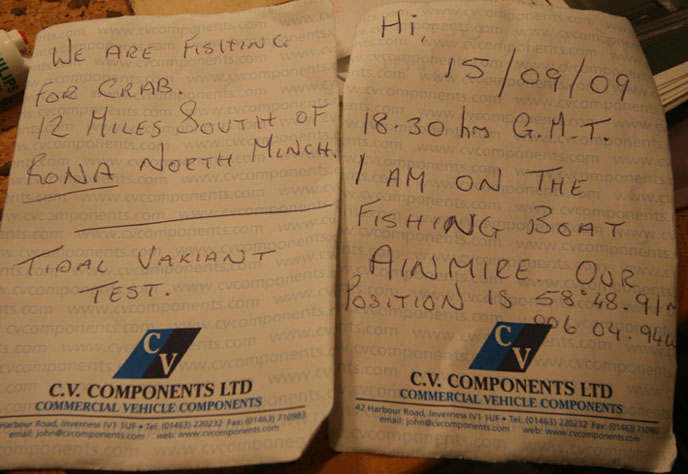 WE ARE FISHING
FOR CRAB.
12 MILES SOUTH OF
RONA NORTH MINCH.
TIDAL VARIANT
TEST.
CV
C.V. COMPONENTS LTD
COMMERCIAL VEHICLE COMPONENTS
Harbour Road, Inverness IV1 1UF • Tel: (01463) 220232 Fax: (01463) 710983
email: john@cvcomponents.com web: www.cvcomponents.com
Hi,
15/09/09
18.30 hrs G.M.T.
I AM ON THE
FISHING BOAT
AINMIRE OUR
POSITION IS 58°48.91N
006 04.94W
CV
C.V. COMPONENTS LTD
COMMERCIAL VEHICLE COMPONENTS
42 Harbour Road, Inverness IV1 1UF • Tel: (01463) 220232 Fax: (01463) 710983
email: john@cvcomponents.com web: www.cvcomponents.com